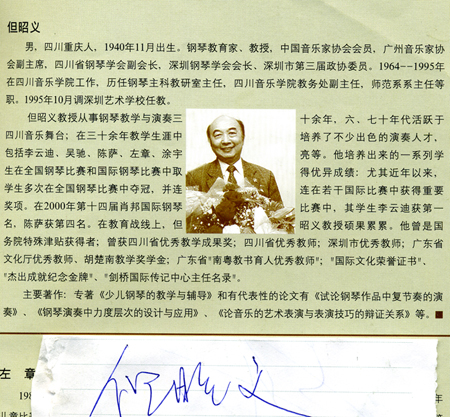 但昭义
男，四川重庆人，1940年11月出生。钢琴教育家、教授，中国音乐家协会会员，广州音乐家协
会副主席，四川省钢琴学会副会长，深圳钢琴学会会长、深圳市第三届政协委员。1964--1995年
在四川音乐学院工作，历任钢琴主科教研室主任，四川音乐学院教务处副主任，师范系系主任等
职。1995年10月调深圳艺术学校任教。
但昭义教授从事钢琴教学与演奏三十余年，六、七十年代活跃于
四川音乐舞台；在三十余年教学生涯中培养了不少出色的演奏人才，
包括李云迪、吴驰、陈萨、左章、涂宇亮等。他培养出来的一系列学
生在全国钢琴比赛和国际钢琴比赛中取得优异成绩：尤其近年以来，
学生多次在全国钢琴比赛中夺冠，并连连在若干国际比赛中获得重要
奖项。在2000年第十四届肖邦国际钢琴比赛中，其学生李云迪获第一
名，陈萨获第四名。在教育战线上，但昭义教授硕果累累。他曾是国
务院特殊津贴获得者；曾获四川省优秀教学成果奖；四川省优秀教师；深圳市优秀教师；广东省
文化厅优秀教师、胡楚南教学奖学金；广东省"南粤教书育人优秀教师"；"国际文化荣誉证书"、
"杰出成就纪念金牌"、"剑桥国际传记中心主任名录"。
主要著作：专著《少儿钢琴的教学与辅导》和有代表性的论文有《试论钢琴作品中复节奏的演
奏》、《钢琴演奏中力度层次的设计与应用》、《论音乐的艺术表演与表演技巧的辩证关系》等。■
左 章
但昭义